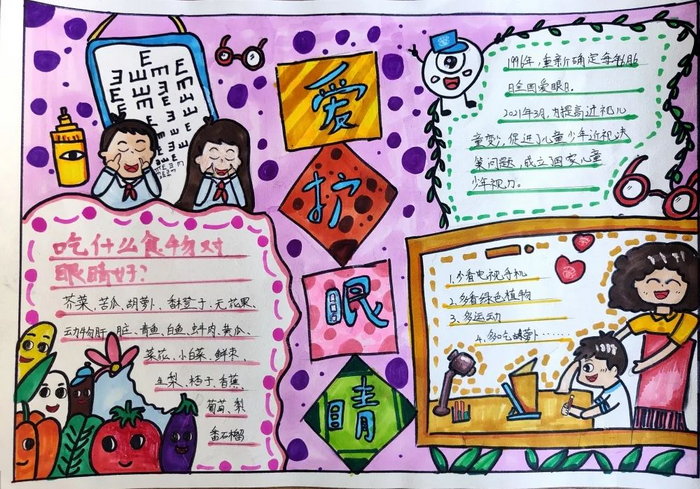 爱
护
眼
睛
1996年,重新确定每年6月6
日全国爱眼日。
2021年3月,为提高
童
进了儿童少年近视决
策问题,成立了国家儿童
少年视力。
吃什么食物对
眼睛好?
芥菜、苦瓜、胡萝卜、无花果、
动物肝脏、青鱼、白鱼、蚌肉、黄瓜、
菜花、小白菜、鲜枣、
生梨、桔子、香蕉、
葡萄、梨
番石榴
1、少看电视手机
2、多看绿色植物
3、多运动
4、多吃胡萝卜……
E